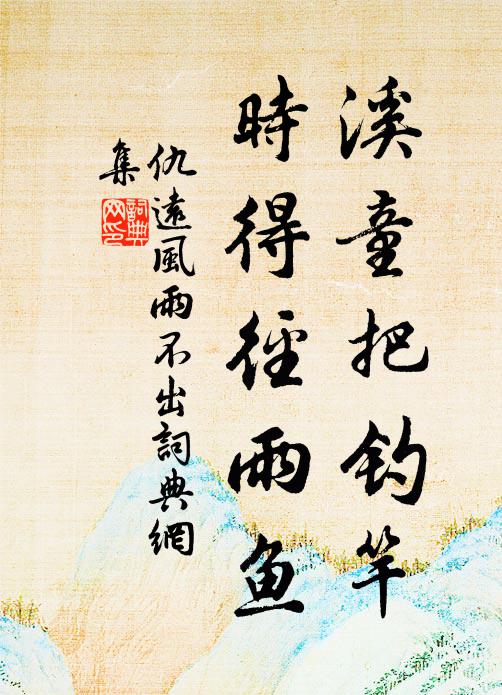 溪童把钓竿
時得径雨鱼
仇遠風雨不出詞典網
集
詞典
网印